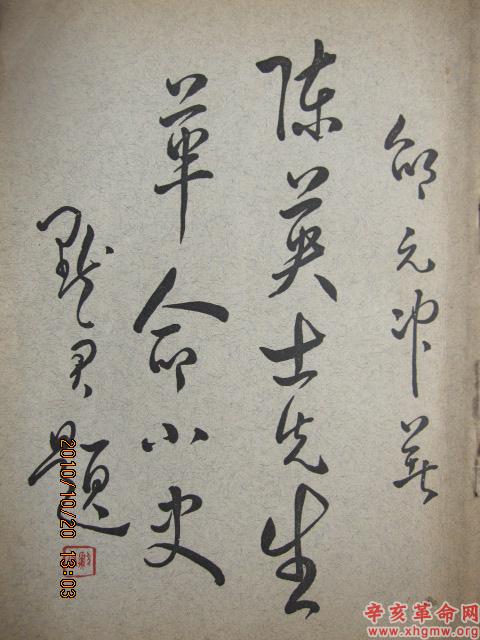 邵元冲著
陈英士先生
革命小史
默君题
2010/10/20 13:03
辛亥革命网
www.xhgmw.org